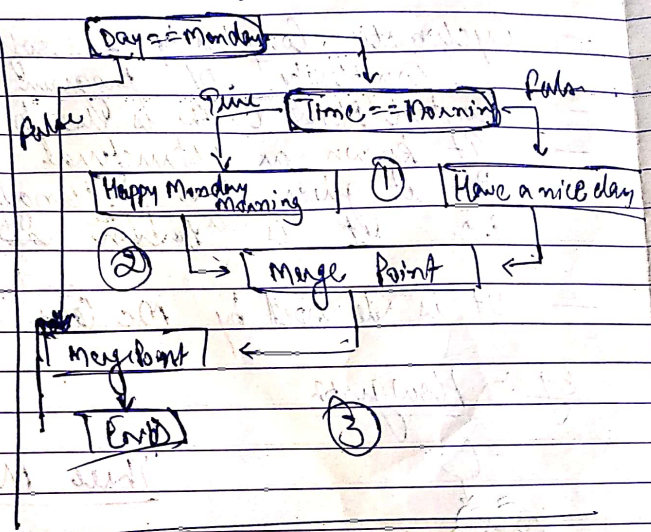 Day == Monday
True
False
False
Time == Morning
Happy Monday
Morning
1
Have a nice day
2
Merge Point
Merge Point
End
3